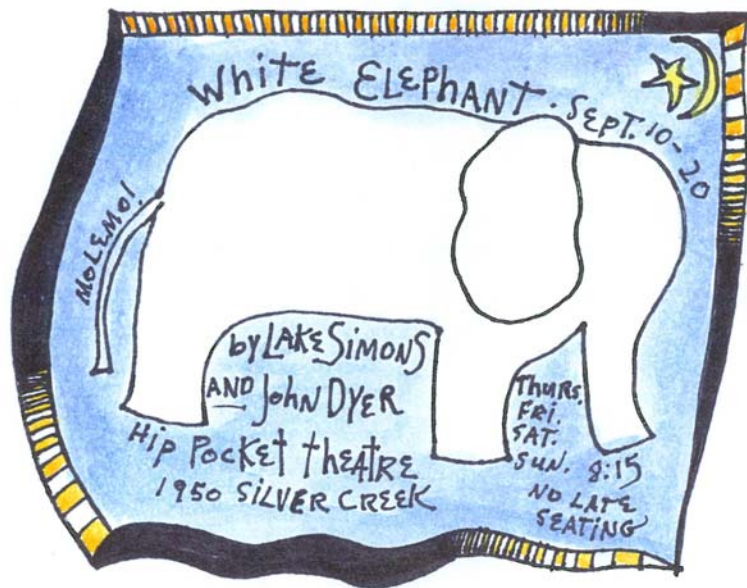 White ELEPHANT · SEPT. 10-20
MOLEMO!
by LAKE SIMONS
AND JOHN DYER
Hip POCKET tHEATRE
1950 SILVER CREEK
THURS.
FRI.
SAT.
SUN. 8:15
NO LATE
SEATING